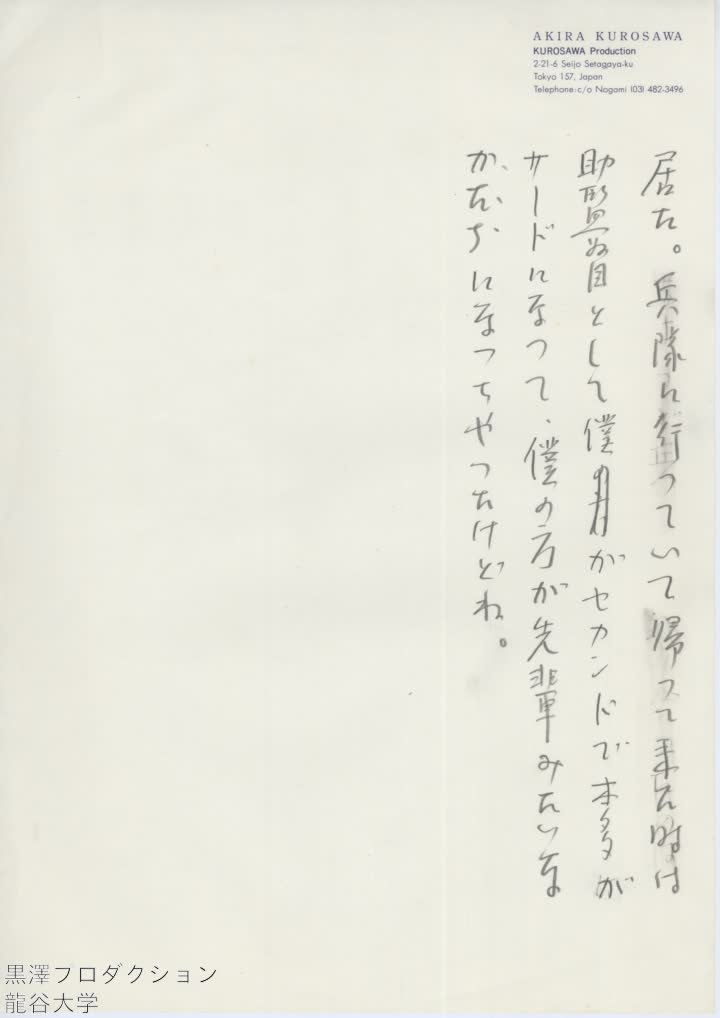 AKIRA KUROSAWA
KUROSAWA Production
2-21-6 Seijo Setagaya-ku
Tokyo 157, Japan
Telephone:c/o Nogami (03) 482-3496
居た。兵隊に行っていて帰って来た時は
助監督目として僕がセカンドで本多が
サードになって、僕の方が先輩みたいな
かたちになっちゃったけどね。
黒澤プロダクション
龍谷大学